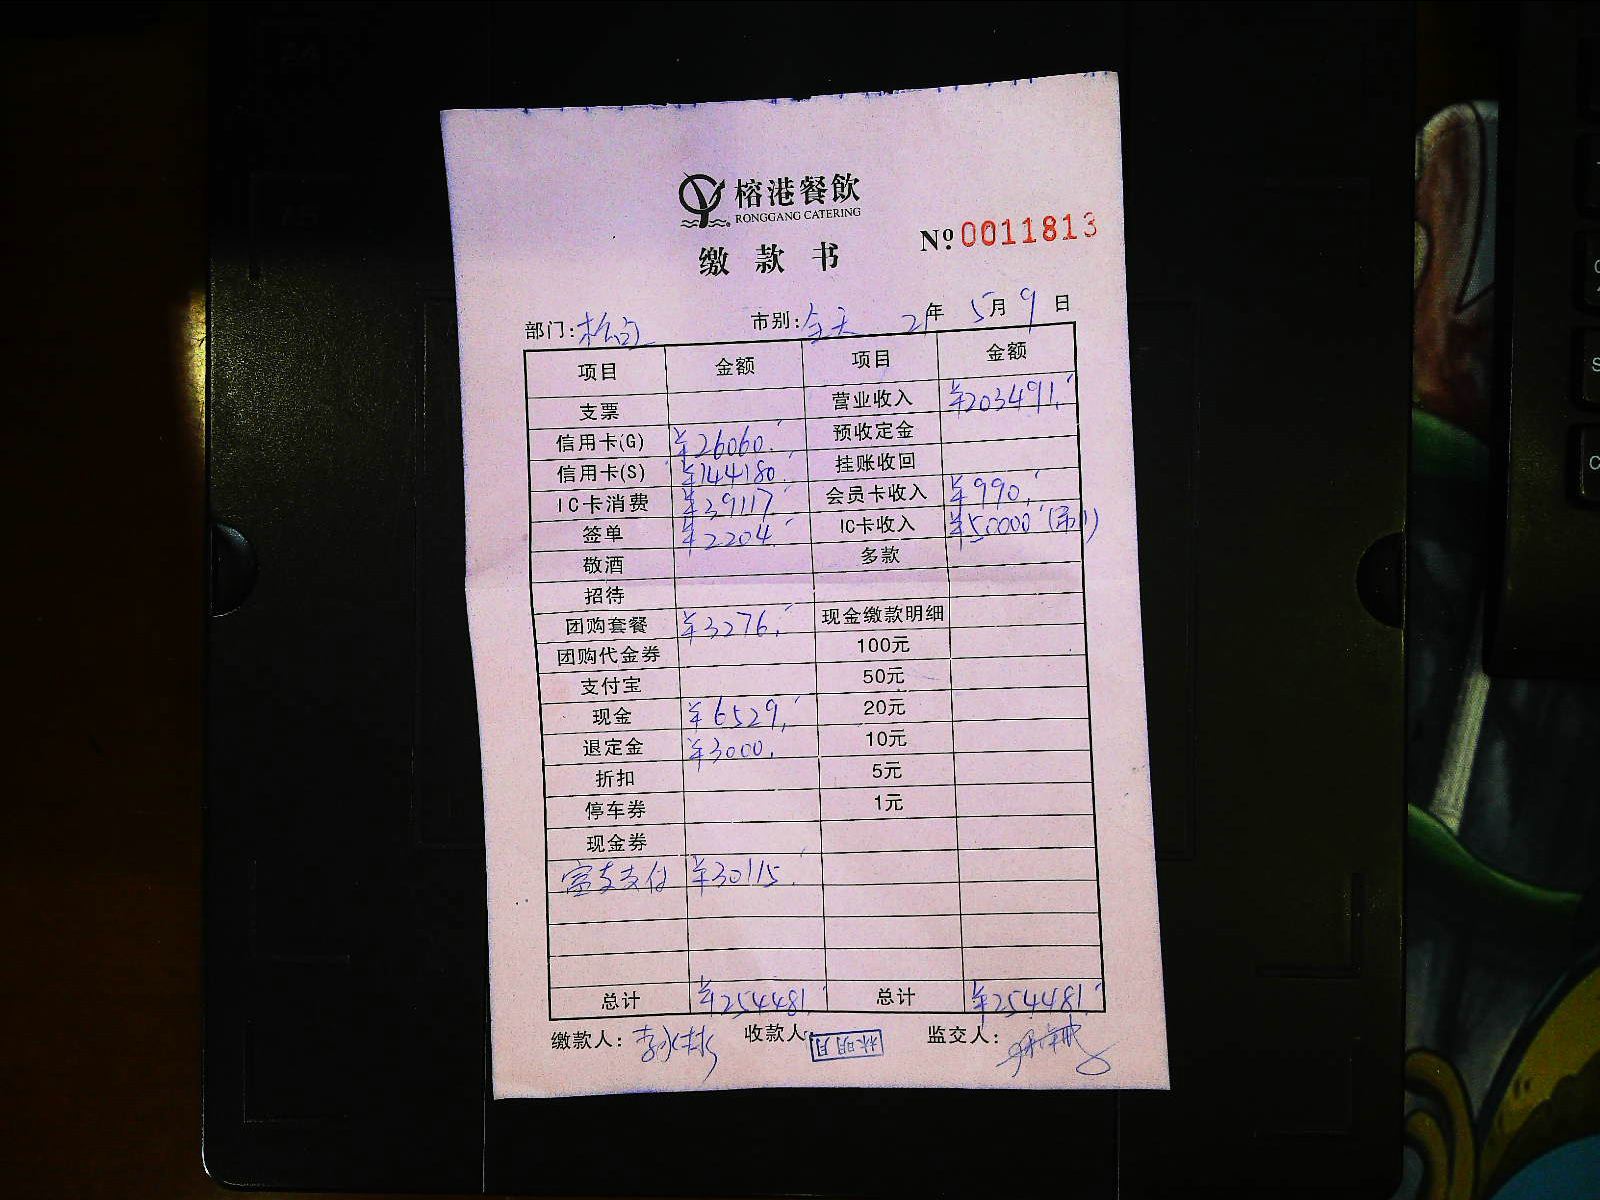 榕港餐飲
RONGGANG CATERING
缴款书
Nº 0011813
部门: 市别:全天 21年 5月 9日
项目 金额 项目 金额
支票 营业收入 ¥203491.
信用卡(G) ¥26060. 预收定金
信用卡(S) ¥144180. 挂账收回
IC卡消费 ¥39117. 会员卡收入 ¥990.
签单 ¥2204. IC卡收入 ¥50000
敬酒 多款
招待
团购套餐 ¥3276. 现金缴款明细
团购代金券 100元
支付宝 50元
现金 ¥6529. 20元
退定金 ¥3000. 10元
折扣 5元
停车券 1元
现金券
支付 ¥30115.
总计 ¥254481. 总计 ¥254481.
缴款人: 收款人: 林明月 监交人: